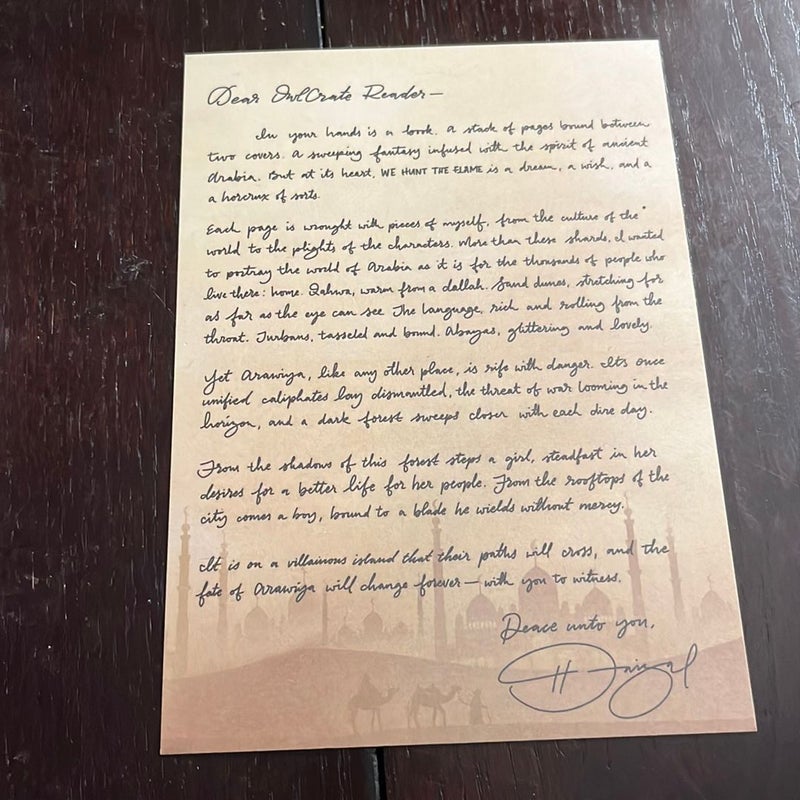 Dear OwlCrate Reader—
In your hands is a book. A stack of pages bound between
two covers. A sweeping fantasy infused with the spirit of ancient
Arabia. But at its heart, WE HUNT THE FLAME is a dream, a wish, and a
a horcrux of sorts.
Each page is wrought with pieces of myself, from the culture of the
world to the plights of the characters. More than these shards, I wanted
to portray the world of Arabia as it is for the thousands of people who
live there: home. Qahwa, warm from a dallah. Sand dunes, stretching for
as far as the eye can see. The language, rich and rolling from the
throat. Turbans, tasseled and bound. Abayas, glittering and lovely.
Yet Arawiya, like any other place, is rife with danger. Its once
unified caliphates lay dismantled, the threat of war looming in the
horizon, and a dark forest sweeps closer with each dire day.
From the shadows of this forest steps a girl, steadfast in her
desires for a better life for her people. From the rooftops of the
city comes a boy, bound to a blade he wields without mercy.
It is on a villainous island that their paths will cross, and the
fate of Arawiya will change forever—with you to witness.
Peace unto you,
H Faizal